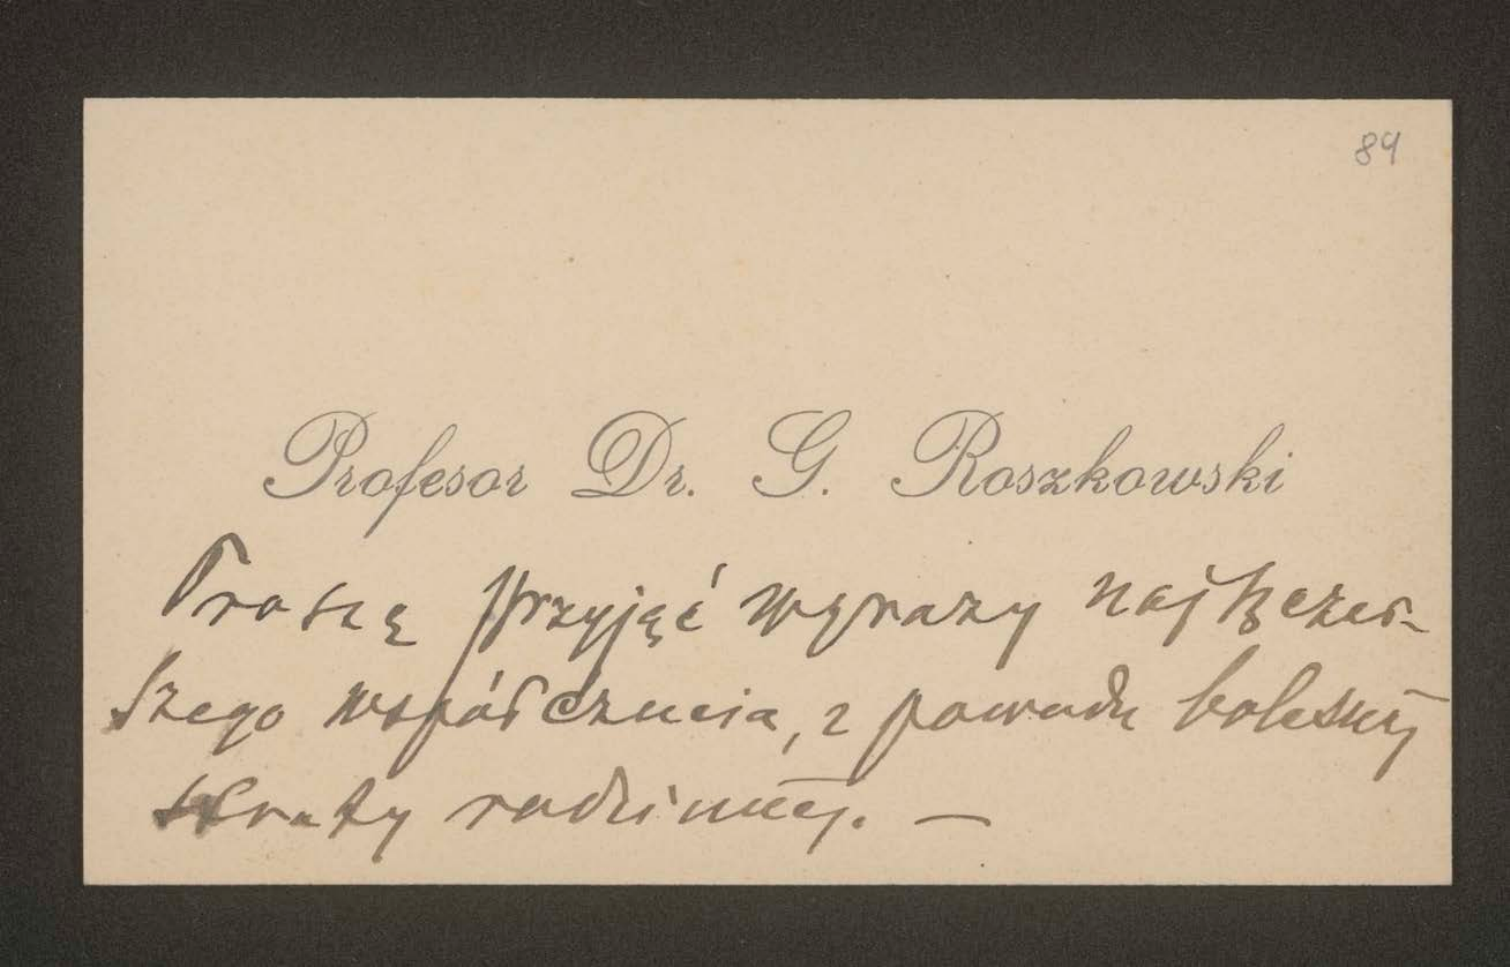 89
Profesor Dr. G. Roszkowski
Proszę przyjąć wyrazy najszczer-
szego współczucia, z powodu bolesnej
straty rodzinnej. —